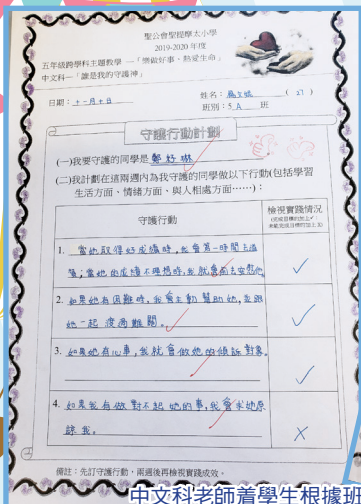 聖公會聖提摩太小學
2019-2020 年度
五年級跨學科主題教學 —「樂做好事、熱愛生命」
中文科—「誰是我的守護神」
姓名：
( 27 )
日期：十一月十日
班別：5 A 班
守護行動計劃
(一)我要守護的同學是 鄭妤琳
(二)我計劃在這兩週內為我守護的同學做以下行動(包括學習
生活方面、情緒方面、與人相處方面……)：
守護行動
檢視實踐情況
(完成目標的加上✓
未能完成目標的加上X)
1. 當她取得好成績時，我會第一時間去恭
賀；當她的成績不理想時，我就會向去安慰她。
✓
2. 如果她有困難時，我會主動幫助她，並跟
她一起渡過難關。
✓
3. 如果她有心事，我就會做她的傾訴對象。
✓
4. 如果我有做對不起她的事，我會求她原
諒我。
X
備註：先訂守護行動，兩週後再檢視實踐成效。
中文科老師着學生根據班